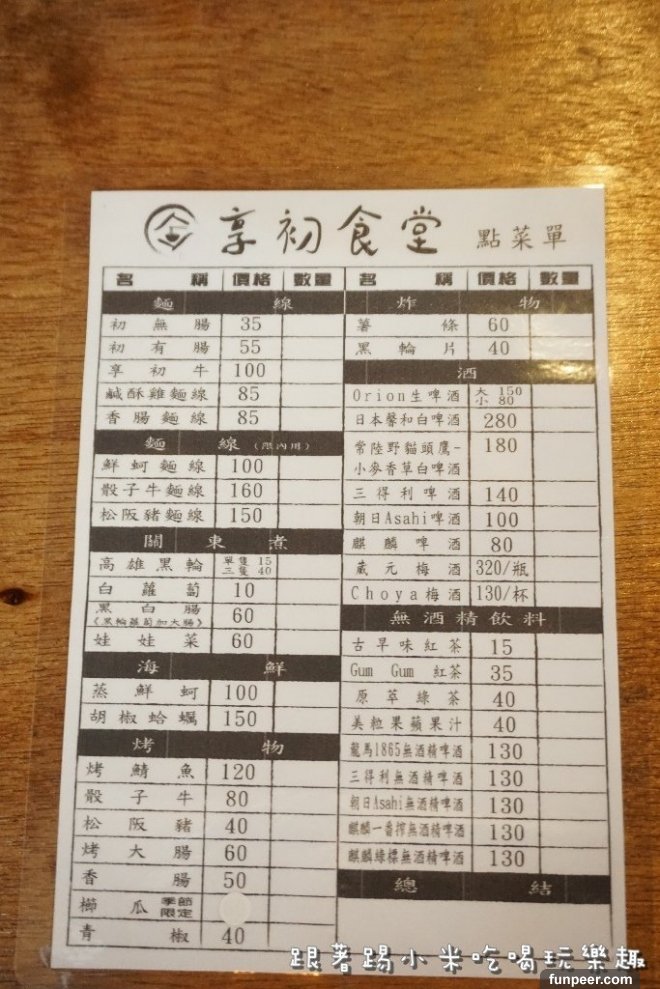 享初食堂 點菜單
名稱 價格 數量
麵線
初無腸 35
初有腸 55
享初牛 100
鹹酥雞麵線 85
香腸麵線 85
麵線(限內用)
鮮蚵麵線 100
骰子牛麵線 160
松阪豬麵線 150
關東煮
高雄黑輪 單隻 15
三隻 40
白蘿蔔 10
黑白腸 60
《黑輪蘿蔔加大腸》
娃娃菜 60
海鮮
蒸鮮蚵 100
胡椒蛤蠣 150
烤物
烤鯖魚 120
骰子牛 80
松阪豬 40
烤大腸 60
香腸 50
櫛瓜 季節
限定
青椒 40
名稱 價格 數量
炸物
薯條 60
黑輪片 40
酒
Orion生啤酒 大 150
小 80
日本馨和白啤酒 280
常陸野貓頭鷹- 180
小麥香草白啤酒
三得利啤酒 140
朝日Asahi啤酒 100
麒麟啤酒 80
蔵元梅酒 320/瓶
Choya梅酒 130/杯
無酒精飲料
古早味紅茶 15
Gum Gum 紅茶 35
原萃綠茶 40
美粒果蘋果汁 40
龍馬1865無酒精啤酒 130
三得利無酒精啤酒 130
朝日Asahi無酒精啤酒 130
麒麟一番搾無酒精啤酒 130
麒麟綠標無酒精啤酒 130
總結
跟著踢小米吃喝玩樂趣
funpeer.com